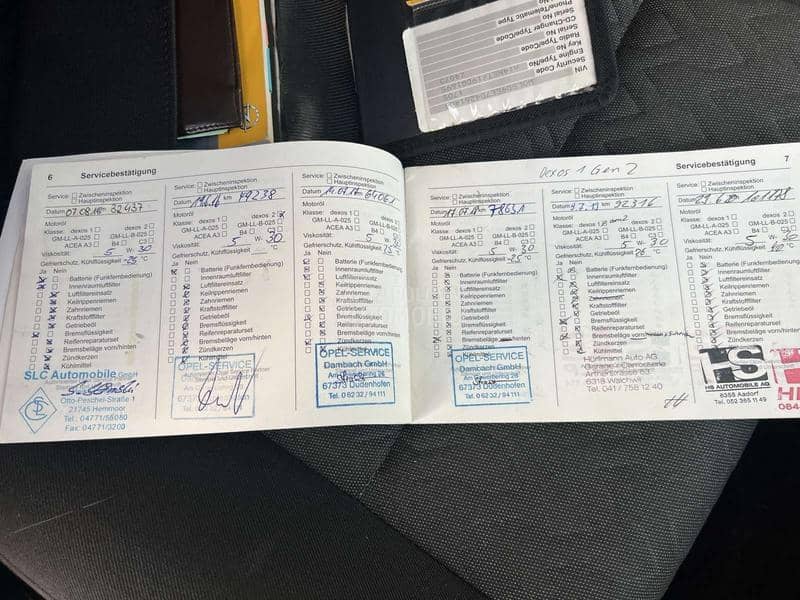 VIN
Security Code
Engine Type/No
Key No
Radio Type/Code
Serial No
CD-Changer Type/Code
Serial No
Phone/Telematic Type
6 Servicebestätigung
Service: Zwischeninspektion
Hauptinspektion
Datum 07.08.
Motoröl
Klasse: dexos 1 dexos 2
GM-LL-A-025 GM-LL-B-025
ACEA A3 B4 C3
Viskosität: 5 W- 30
Gefrierschutz, Kühlflüssigkeit -25 °C
Ja Nein
Batterie (Funkfernbedienung)
Innenraumluftfilter
Luftfiltereinsatz
Keilrippenriemen
Zahnriemen
Kraftstofffilter
Getriebeöl
Bremsflüssigkeit
Reifenreparaturset
Bremsbeläge vorn/hinten
Zündkerzen
Kühlmittel
SLC Automobile GmbH
Otto-Peschel-Straße 1
21745 Hemmoor
Tel. 04771/58080
Fax: 04771/3200
Service: Zwischeninspektion
Hauptinspektion
Datum km 49238
Motoröl
Klasse: dexos 1 dexos 2
GM-LL-A-025 GM-LL-B-025
ACEA A3 B4 C3
Viskosität: 5 W- 30
Gefrierschutz, Kühlflüssigkeit °C
Ja Nein
Batterie (Funkfernbedienung)
Innenraumluftfilter
Luftfiltereinsatz
Keilrippenriemen
Zahnriemen
Kraftstofffilter
Getriebeöl
Bremsflüssigkeit
Reifenreparaturset
Bremsbeläge vorn/hinten
Zündkerzen
Kühlmittel
OPEL-SERVICE
Dambach GmbH
67373 Dudenhofen
Tel. 0 62 32 / 94 111
Service: Zwischeninspektion
Hauptinspektion
Datum
Motoröl
Klasse: dexos 1 dexos 2
GM-LL-A-025 GM-LL-B-025
ACEA A3 B4 C3
Viskosität: 5 W- 30
Gefrierschutz, Kühlflüssigkeit °C
Ja Nein
Batterie (Funkfernbedienung)
Innenraumluftfilter
Luftfiltereinsatz
Keilrippenriemen
Zahnriemen
Kraftstofffilter
Getriebeöl
Bremsflüssigkeit
Reifenreparaturset
Bremsbeläge vorn/hinten
Zündkerzen
Kühlmittel
OPEL-SERVICE
Dambach GmbH
67373 Dudenhofen
Tel. 0 62 32 / 94 111
Dexos 1 Gen 2
Servicebestätigung 7
Service: Zwischeninspektion
Hauptinspektion
Datum 78651
Motoröl
Klasse: dexos 1 dexos 2
GM-LL-A-025 GM-LL-B-025
ACEA A3 B4 C3
Viskosität: 5 W- 30
Gefrierschutz, Kühlflüssigkeit -25 °C
Ja Nein
Batterie (Funkfernbedienung)
Innenraumluftfilter
Luftfiltereinsatz
Keilrippenriemen
Zahnriemen
Kraftstofffilter
Getriebeöl
Bremsflüssigkeit
Reifenreparaturset
Bremsbeläge vorn/hinten
Zündkerzen
Kühlmittel
OPEL-SERVICE
Dambach GmbH
67373 Dudenhofen
Tel. 0 62 32 / 94 111
Service: Zwischeninspektion
Hauptinspektion
Datum 92316
Motoröl
Klasse: dexos 1 gen 2
GM-LL-A-025 GM-LL-B-025
ACEA A3 B4 C3
Viskosität: 5 W- 30
Gefrierschutz, Kühlflüssigkeit °C
Ja Nein
Batterie (Funkfernbedienung)
Innenraumluftfilter
Luftfiltereinsatz
Keilrippenriemen
Zahnriemen
Kraftstofffilter
Getriebeöl
Bremsflüssigkeit
Reifenreparaturset
Bremsbeläge vorn/hinten
Zündkerzen
Kühlmittel
Hürlimann Auto AG
Garage + Carrosserie
Artherstrasse
6318 Walchwil
Tel. 041 / 758 12 40
Service: Zwischeninspektion
Hauptinspektion
Datum
Motoröl
Klasse: dexos 1 dexos 2
GM-LL-A-025 GM-LL-B-025
ACEA A3 B4 C3
Viskosität: 5 W- 30
Gefrierschutz, Kühlflüssigkeit °C
Ja Nein
Batterie (Funkfernbedienung)
Innenraumluftfilter
Luftfiltereinsatz
Keilrippenriemen
Zahnriemen
Kraftstofffilter
Getriebeöl
Bremsflüssigkeit
Reifenreparaturset
Bremsbeläge vorn/hinten
Zündkerzen
Kühlmittel
HS
HS AUTOMOBILE AG
8355 Aadorf
Tel. 052 365 11 49